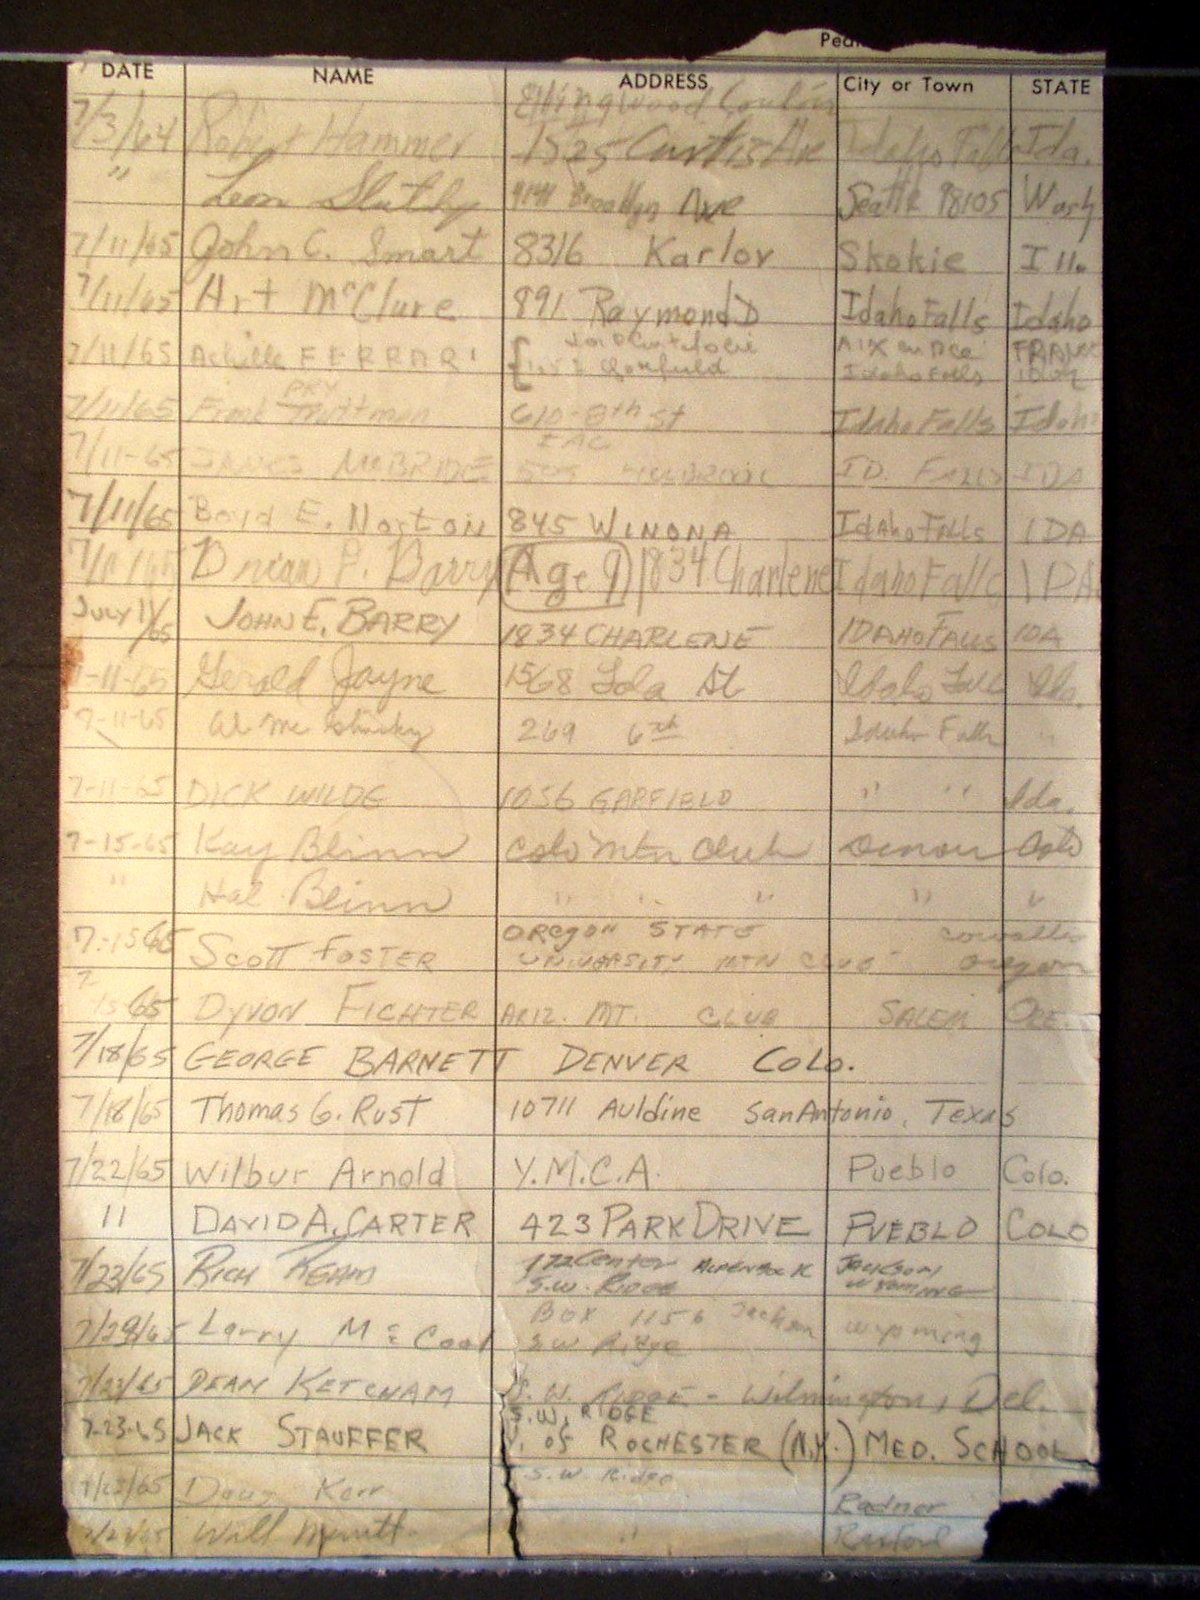 DATE NAME ADDRESS City or Town STATE
7/3/64 Robert Hammer 1525 Curtis Ave Idaho Falls Ida.
" Leon Ave Seattle 98105 Wash
7/11/65 John C. Smart 8316 Karlov Skokie Ill.
7/11/65 Art McClure 891 Raymond D Idaho Falls Idaho
7/11/65 Achille FERRARI AIX France
Idaho Falls
7/11/65 Frank 610-8th St Idaho Falls Idaho
7/11-65 James McBRIDE ID. Falls IDA
7/11/65 Boyd E. Norton 845 WINONA Idaho Falls IDA
7/11/65 Brian P. Barry Age 9 1834 Charlene Idaho Falls IDA
July 11/65 JOHN E. BARRY 1834 CHARLENE IDAHO FALLS IDA
7-11-65 Gerald Jayne 1568 Lola St Idaho Falls Ida.
7-11-65 Al 269 6th Idaho Falls "
7-11-65 DICK WILDE 1056 GARFIELD " " Ida.
7-15-65 Kay Blinn Colo Mtn Club Denver Colo
" Hal Blinn " " " " "
7-15-65 SCOTT FOSTER OREGON STATE
UNIVERSITY MTN CLUB Corvallis
Oregon
7 15 65 DYVON FICHTER ARIZ. MT. CLUB SALEM ORE.
7/18/65 GEORGE BARNETT DENVER COLO.
7/18/65 Thomas G. Rust 10711 Auldine San Antonio, Texas
7/22/65 Wilbur Arnold Y.M.C.A. Pueblo Colo.
11 DAVID A. CARTER 423 PARK DRIVE PUEBLO COLO
7/23/65 RICH REAM 172 Center
S.W. Ridge Jackson
Wyoming
7/29/65 Larry McCool Box 1156 Jackson Wyoming
SW Ridge
7/23/65 DEAN KETCHAM S.W. RIDGE - Wilmington, Del.
S.W. RIDGE
7-23-65 JACK STAUFFER U. of ROCHESTER (N.Y.) MED. SCHOOL
7/23/65 Doug Kerr S.W. Ridge Radnor
7/23/65 Will "